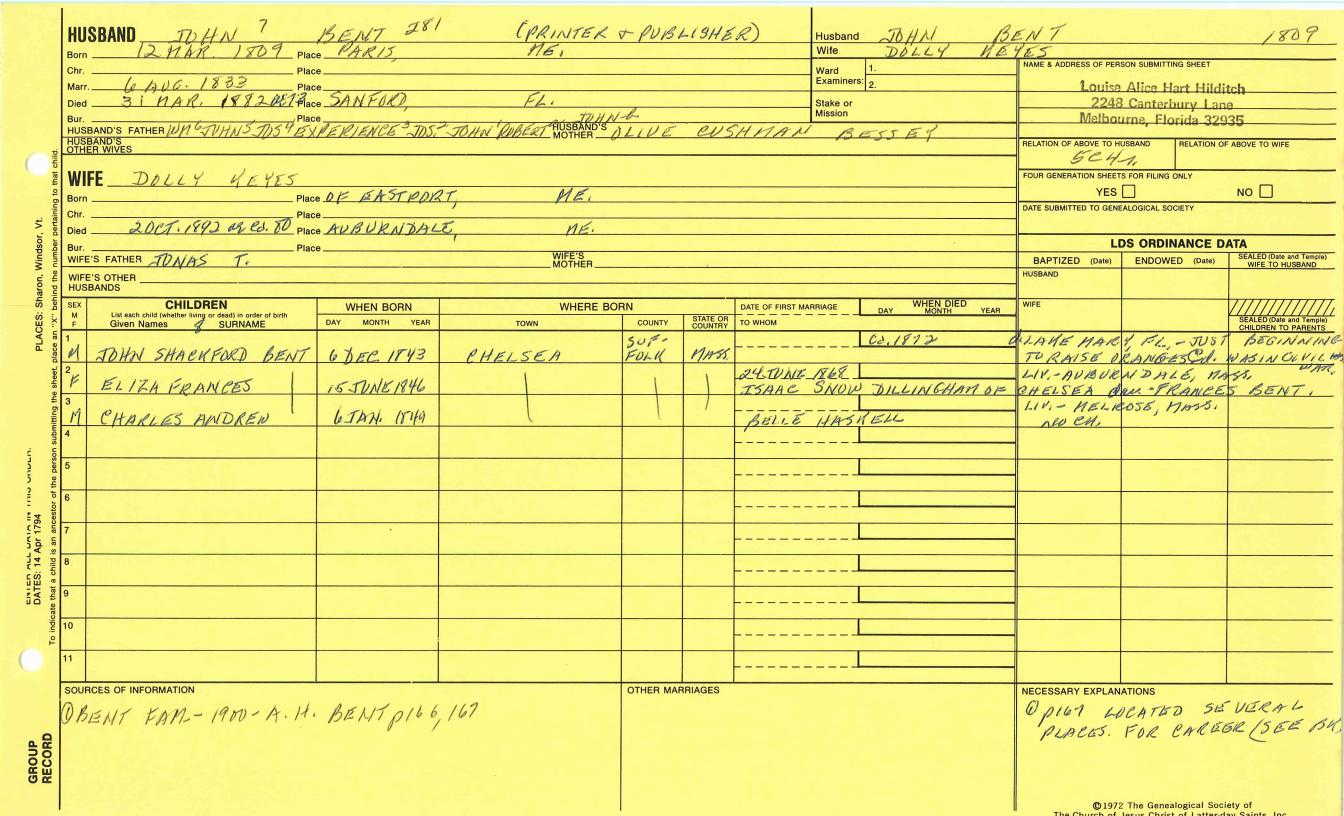 HUSBAND JOHN 7 BENT 281 (PRINTER & PUBLISHER)
Born 12 MAR. 1809 Place PARIS, ME.
Chr. Place
Marr. 6 AUG. 1833 Place
Died 31 MAR. 1882 Place SANFORD, FL.
Bur. Place
HUSBAND'S FATHER WM6 JOHN5 JOS4 EXPERIENCE3 JOS2 JOHN1 ROBERT JOHN HUSBAND'S MOTHER OLIVE CUSHMAN BESSEY
HUSBAND'S OTHER WIVES
WIFE DOLLY KEYES
Born Place OF EASTPORT, ME.
Chr. Place
Died 2 OCT. 1892 80 Place AUBURNDALE, ME.
Bur. Place
WIFE'S FATHER JONAS T. WIFE'S MOTHER
WIFE'S OTHER HUSBANDS
Husband JOHN BENT 1809
Wife DOLLY KEYES
Ward Examiners: 1. 2.
Stake or Mission
NAME & ADDRESS OF PERSON SUBMITTING SHEET
Louise Alice Hart Hilditch
2248 Canterbury Lane
Melbourne, Florida 32935
RELATION OF ABOVE TO HUSBAND RELATION OF ABOVE TO WIFE
FOUR GENERATION SHEETS FOR FILING ONLY
YES NO
DATE SUBMITTED TO GENEALOGICAL SOCIETY
LDS ORDINANCE DATA
BAPTIZED (Date) ENDOWED (Date) SEALED (Date and Temple) WIFE TO HUSBAND
HUSBAND
WIFE
SEALED (Date and Temple) CHILDREN TO PARENTS
SEX M F
CHILDREN
List each child (whether living or dead) in order of birth
Given Names 8 SURNAME
WHEN BORN DAY MONTH YEAR
WHERE BORN TOWN COUNTY STATE OR COUNTRY
DATE OF FIRST MARRIAGE TO WHOM
WHEN DIED DAY MONTH YEAR
1 M JOHN SHACKFORD BENT 6 DEC. 1843 CHELSEA SUFFOLK MASS. LAKE MARY, FL.- JUST BEGINNING
TO RAISE ORANGES WAS IN CIVIL WAR.
2 F ELIZA FRANCES 15 JUNE 1846 24 JUNE 1868 LIV.- AUBURNDALE, MASS.
ISAAC SNOW DILLINGHAM OF CHELSEA FRANCES BENT.
3 M CHARLES ANDREW 6 JAN. 1849 BELLE HASKELL LIV.- MELROSE, MASS.
NO CH.
4
5
6
7
8
9
10
11
SOURCES OF INFORMATION
① BENT FAM- 1900- A.H. BENT p166, 167
OTHER MARRIAGES
NECESSARY EXPLANATIONS
① p167 LOCATED SEVERAL
PLACES. FOR CAREER (SEE
©1972 The Genealogical Society of
The Church of Jesus Christ of Latter-day Saints, Inc.
PLACES: Sharon, Windsor, Vt.
DATES: 14 Apr 1794
ENTER ALL DATA IN THIS ORDER:
To indicate that a child is an ancestor of the person submitting the sheet, place an "X" behind the number pertaining to that child.
GROUP RECORD